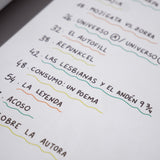 18 MOJIGATA VS. ZORRA
26 UNIVERSO @/ UNIVERSO
32 EL AUTOFILL
38 REPUNKCEL
42 LAS LESBIANAS Y EL ANDÉN 9 3/4
48 CONSUMO: UN POEMA
54 LA LEYENDA
ACOSO
SOBRE LA AUTORA